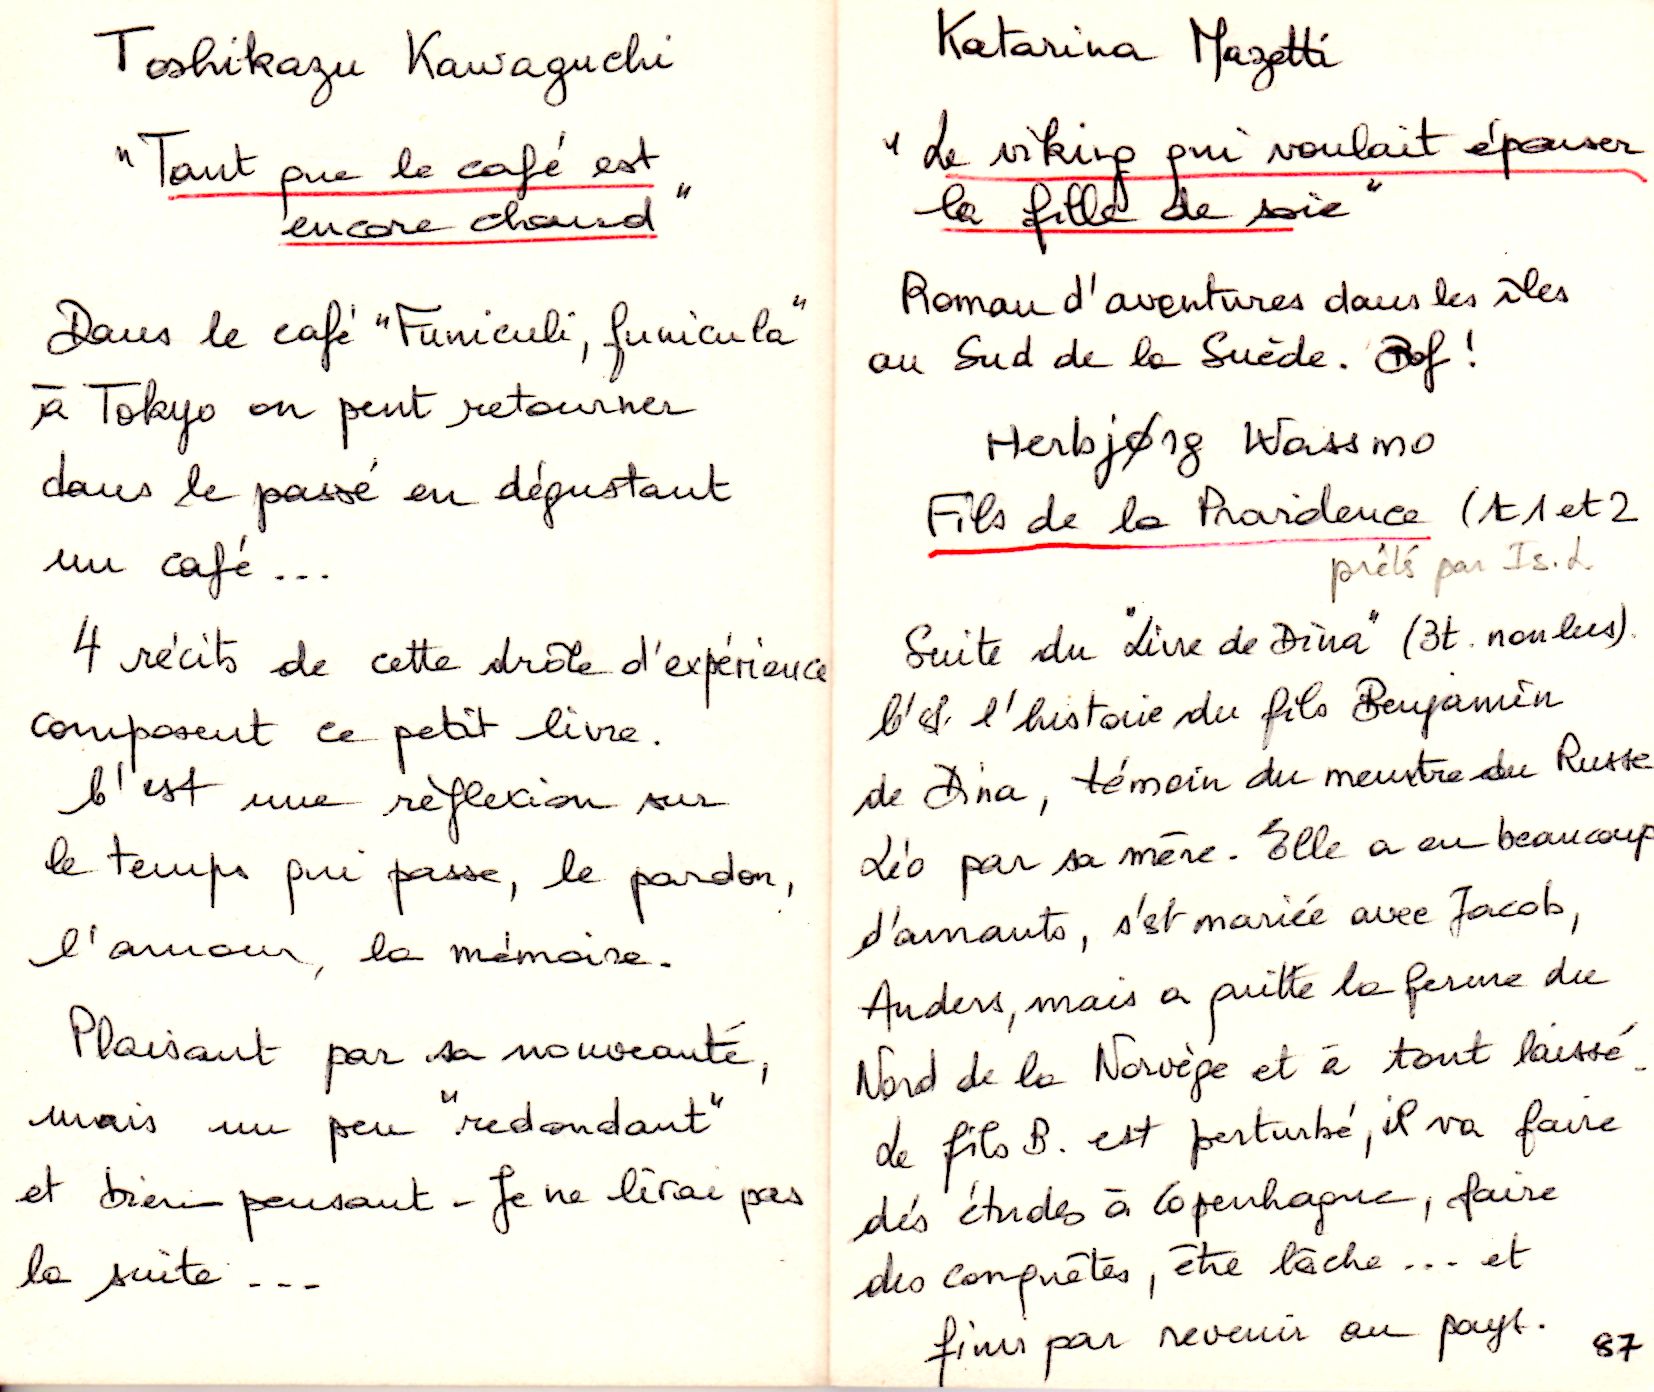 Toshikazu Kawaguchi
"Tant que le café est
encore chaud"
Dans le café "Funiculi, funicula"
à Tokyo on peut retourner
dans le passé en dégustant
un café...
4 récits de cette drôle d'expérience
composent ce petit livre.
C'est une réflexion sur
le temps qui passe, le pardon,
l'amour, la mémoire.
Plaisant par sa nouveauté,
mais un peu "redondant"
et bien-pensant - Je ne lirai pas
la suite ...
Katarina Mazetti
"Le viking qui voulait épouser
la fille de soie"
Roman d'aventures dans les îles
au Sud de la Suède. Bof !
Herbjørg Wassmo
Fils de la Providence (t 1 et 2
prêtés par Is. L
Suite du "Livre de Dina" (3t. non lus).
C'st l'histoire du fils Benjamin
de Dina, témoin du meurtre du Russe
Léo par sa mère. Elle a eu beaucoup
d'amants, s'est mariée avec Jacob,
Anders, mais a quitté la ferme du
Nord de la Norvège et a tout laissé.
Le fils B. est perturbé, il va faire
dés études à Copenhague, faire
des conquêtes, être lâche ... et
finir par revenir au pays.
87